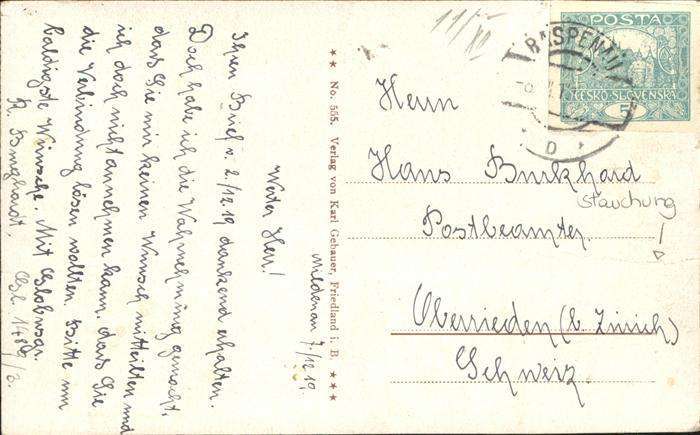 Mildenau 7/12 19
Werter Herr!
Ihren Brief v. 2/12 19 dankend erhalten.
Doch habe ich die Wahrnehmung gemacht,
dass Sie mir keinen Wunsch mitteilten und
ich doch nicht annehmen kann, dass Sie
die Verbindung lösen wollten. Bitte um
baldigste Wünsche. Mit Globusgr.
R. Burghardt.
** No. 555. Verlag von Karl Gebauer, Friedland i. B. ***
11/5 XII
RASPENAU
D
POSTA
ČESKO-SLOVENSKÁ
5
Herrn
Hans Burkhard
Stauchung
!
Postbeamter
Oberrieden (b. Zürich)
Schweiz.